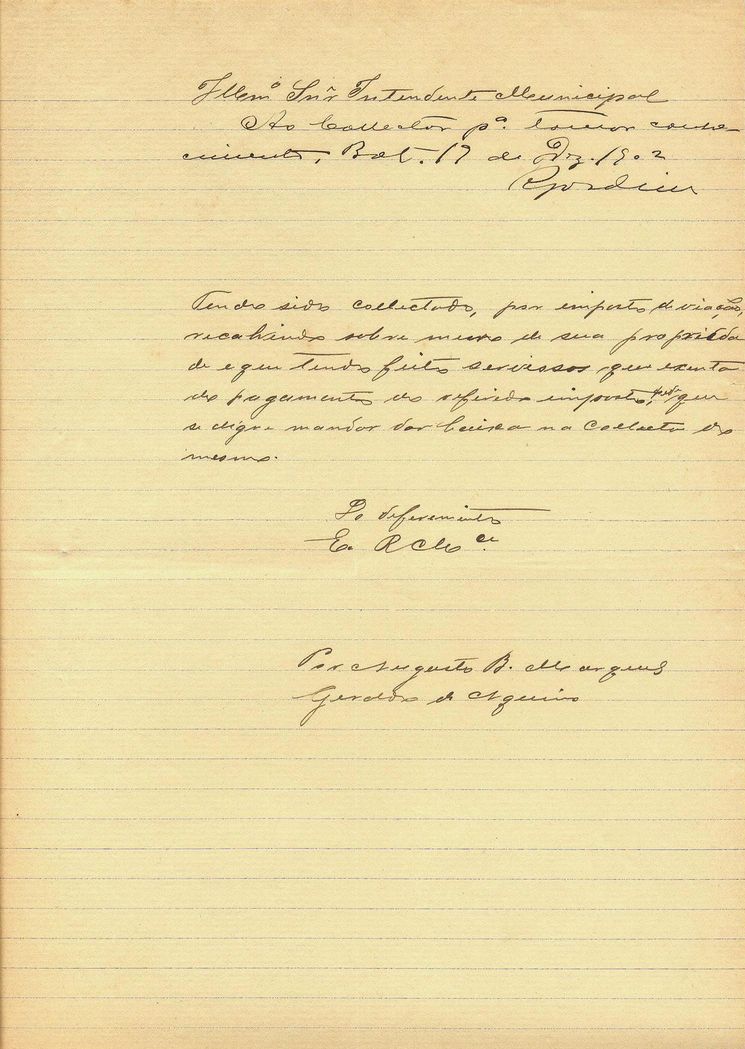 Illmº Snr Intendente Municipal
Ao Collector pª. tomar conhe-
cimento, Bat. 17 de Dez. 1902
Tendo sido collectado, por imposto de viação,
recahindo sobre muro de sua proprieda
de e que tendo feito servissos que exenta
do pagamento do referido imposto, pede que
se digne mandar dar baixa na collecta do
mesmo.
Do deferimento
E. R Mce.
Por Augusto B. Marques
Geraldo de Aquino